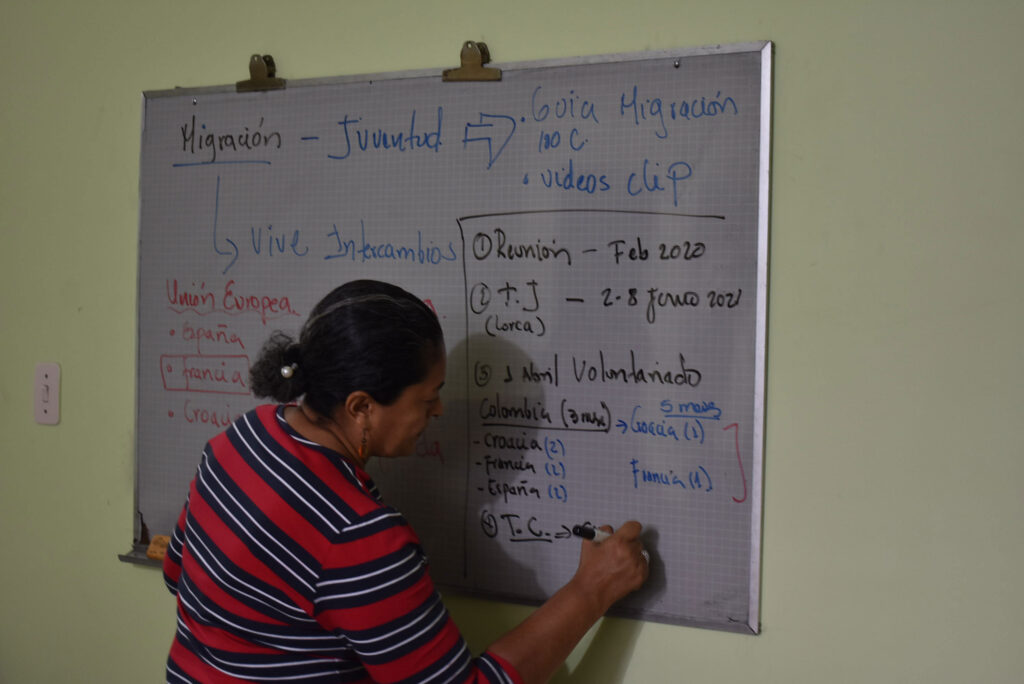 Migración - Juventud ⇒ • Guía Migración
100 C.
• videos clip
↳ Vive Intercambios
Unión Europea.
• España
• Francia
• Croacia
① Reunión - Feb 2020
② T.J - 2-8 Junio 2021
(Lorca)
③ 1 Abril Voluntariado
Colombia (3 mese) → 5 meses
Croacia (1)
- Croacia (2)
- Francia (2) Francia (1)
- España (2)
④ T.C. ⇒